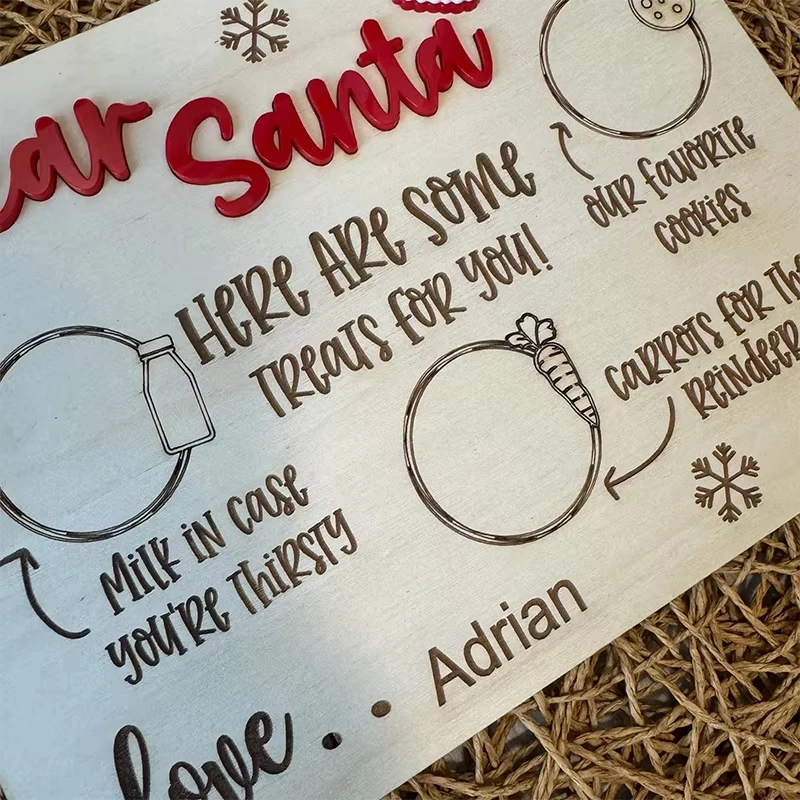 ar Santa
Here are some
treats for you!
our favorite
cookies
Carrots for the
reindeer
Milk in case
you're thirsty
love.. Adrian